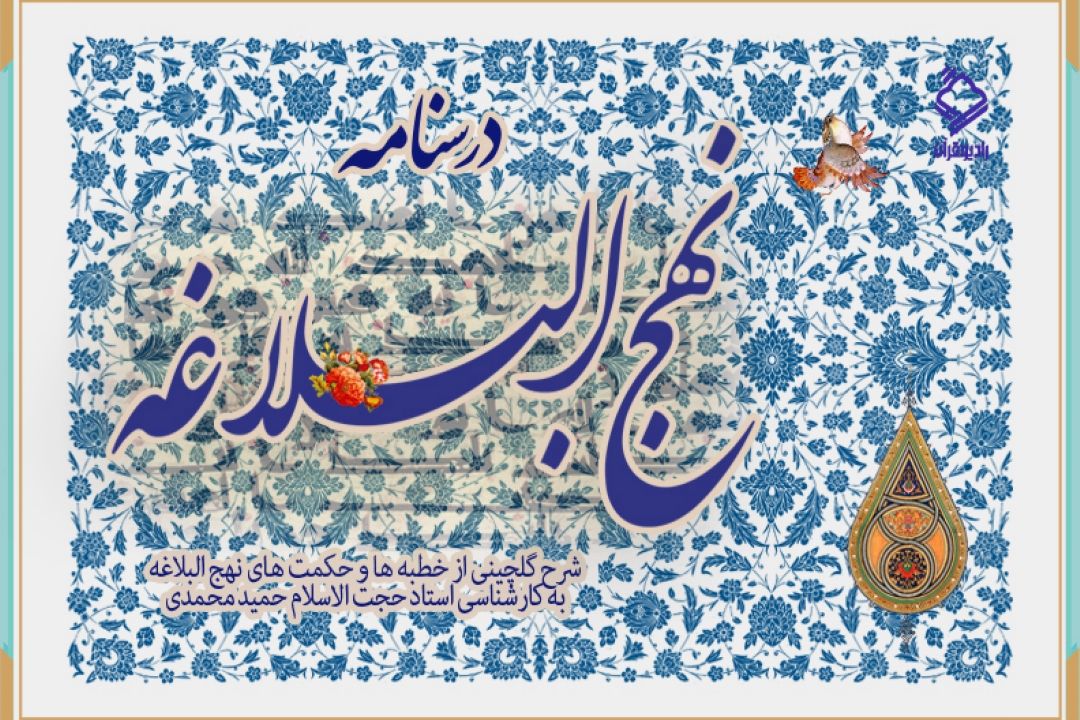 رادیو قرآن
درسنامه
نهج البلاغه
شرح گلچینی از خطبه ها و حکمت های نهج البلاغه
به کارشناسی استاد حجت الاسلام حمید محمدی